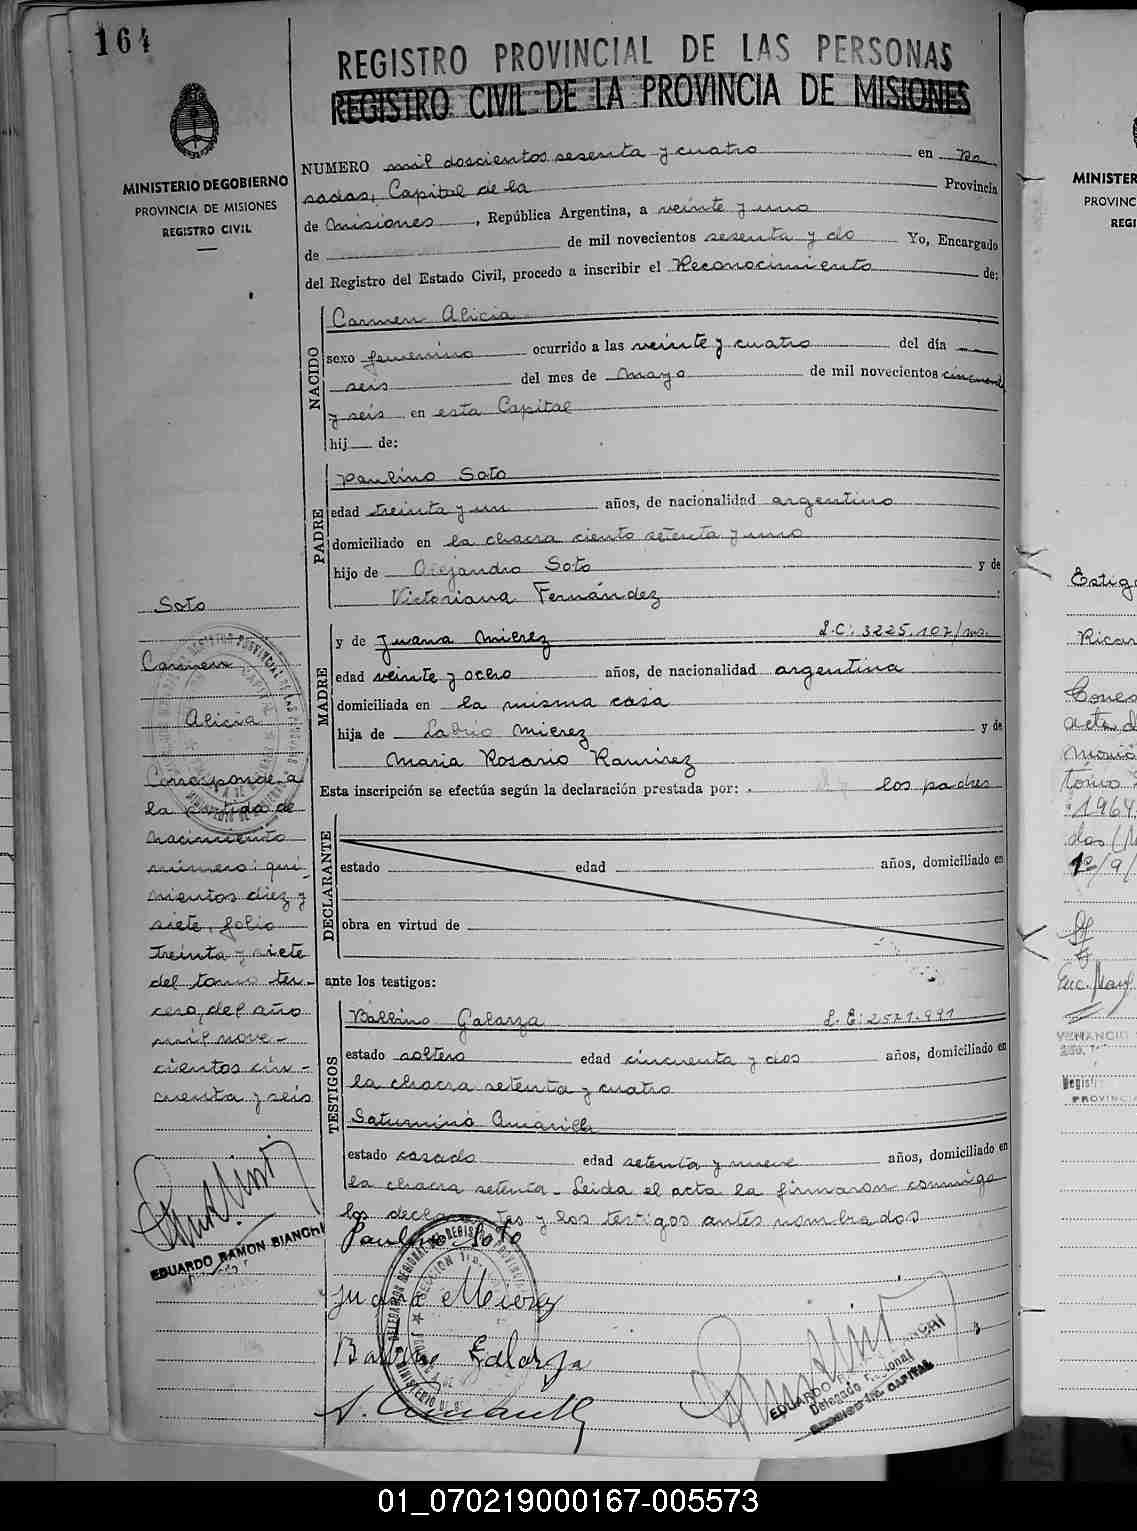 164
REGISTRO PROVINCIAL DE LAS PERSONAS
REGISTRO CIVIL DE LA PROVINCIA DE MISIONES
MINISTERIO DE GOBIERNO
PROVINCIA DE MISIONES
REGISTRO CIVIL
NUMERO mil doscientos sesenta y cuatro en Po
sadas, Capital de la Provincia
de Misiones, República Argentina, a veinte y uno
de de mil novecientos sesenta y do Yo, Encargado
del Registro del Estado Civil, procedo a inscribir el Reconocimiento de:
NACIDO
Carmen Alicia
sexo femenino ocurrido a las veinte y cuatro del día
seis del mes de Mayo de mil novecientos cincuenta
y seis en esta Capital
hij de:
PADRE
Paulino Soto
edad treinta y un años, de nacionalidad argentino
domiciliado en la chacra ciento setenta y uno
hijo de Alejandro Soto y de
Victoriana Fernández
MADRE
y de Juana Mierez L.C: 3225.107/ms.
edad veinte y ocho años, de nacionalidad argentina
domiciliada en la misma casa
hija de Labrio Mierez y de
Maria Rosario Ramirez
Esta inscripción se efectúa según la declaración prestada por: los padres
DECLARANTE
estado edad años, domiciliado en
obra en virtud de
ante los testigos:
TESTIGOS
Balbino Galarza L.E: 2571.991
estado soltero edad cincuenta y dos años, domiciliado en
la chacra setenta y cuatro
Saturnino Amarilla
estado casado edad setenta y nueve años, domiciliado en
la chacra setenta - Leida el acta la firmaron conmigo
los declarantes y los testigos antes nombrados
Paulino Soto
Juana Mierez
Balbino Galarza
S. Amarilla
Soto
Carmen
Alicia
Corresponde a
la partida de
nacimiento
número: qui-
nientos diez y
siete, folio
treinta y siete
del tomo ter-
cero, del año
mil nove-
cientos cin-
cuenta y seis
EDUARDO RAMON BIANCHI
EDUARDO BIANCHI
Delegado Regional
MINISTER
PROVINC
REGI
Ricar
acta d
tomo
1964
VENANCIO
Regist
PROVINCIA
01_070219000167-005573